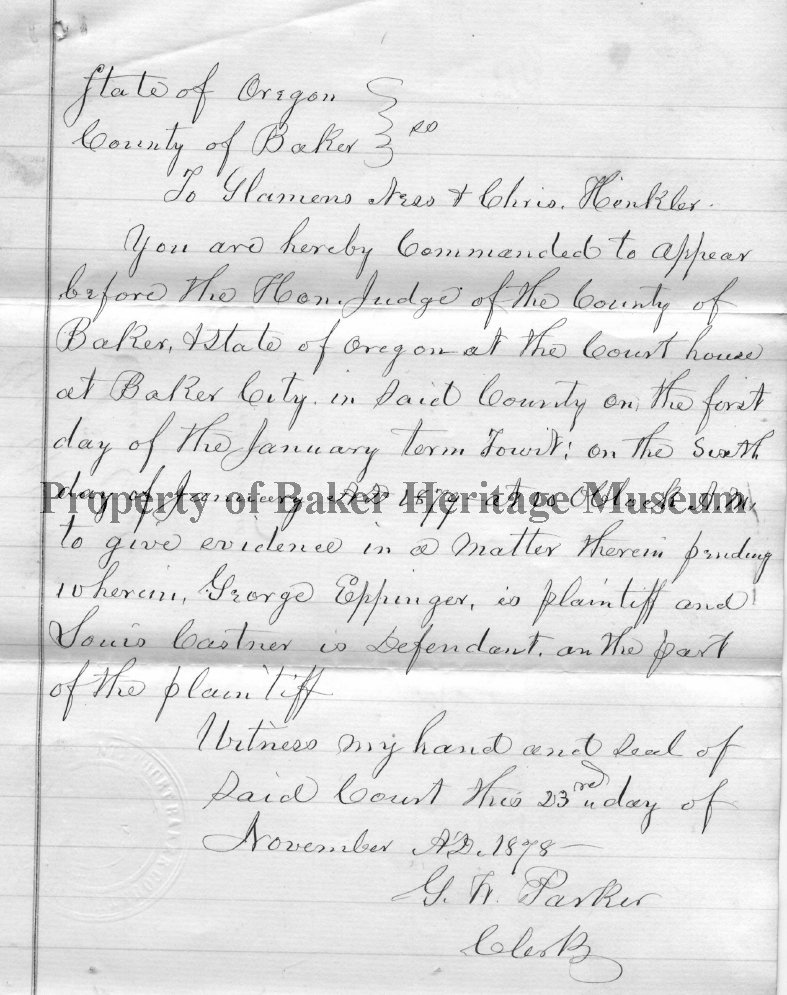 State of Oregon
County of Baker } ss
To Glamens Ness & Chris. Henkler.
You are hereby Commanded to appear
before the Hon. Judge of the County of
Baker, & State of Oregon at the Court house
at Baker City in Said County on the first
day of the January term Towit: on the Sixth
day of January AD 1879 at 10 Oclock A.M.
Property of Baker Heritage Museum
to give evidence in a Matter therein pending
wherein, George Eppinger, is plaintiff and
Louis Castner is Defendant. on the part
of the plaintiff
Witness my hand and Seal of
Said Court this 23rd day of
November A.D. 1878 –
G. W. Parker
Clerk